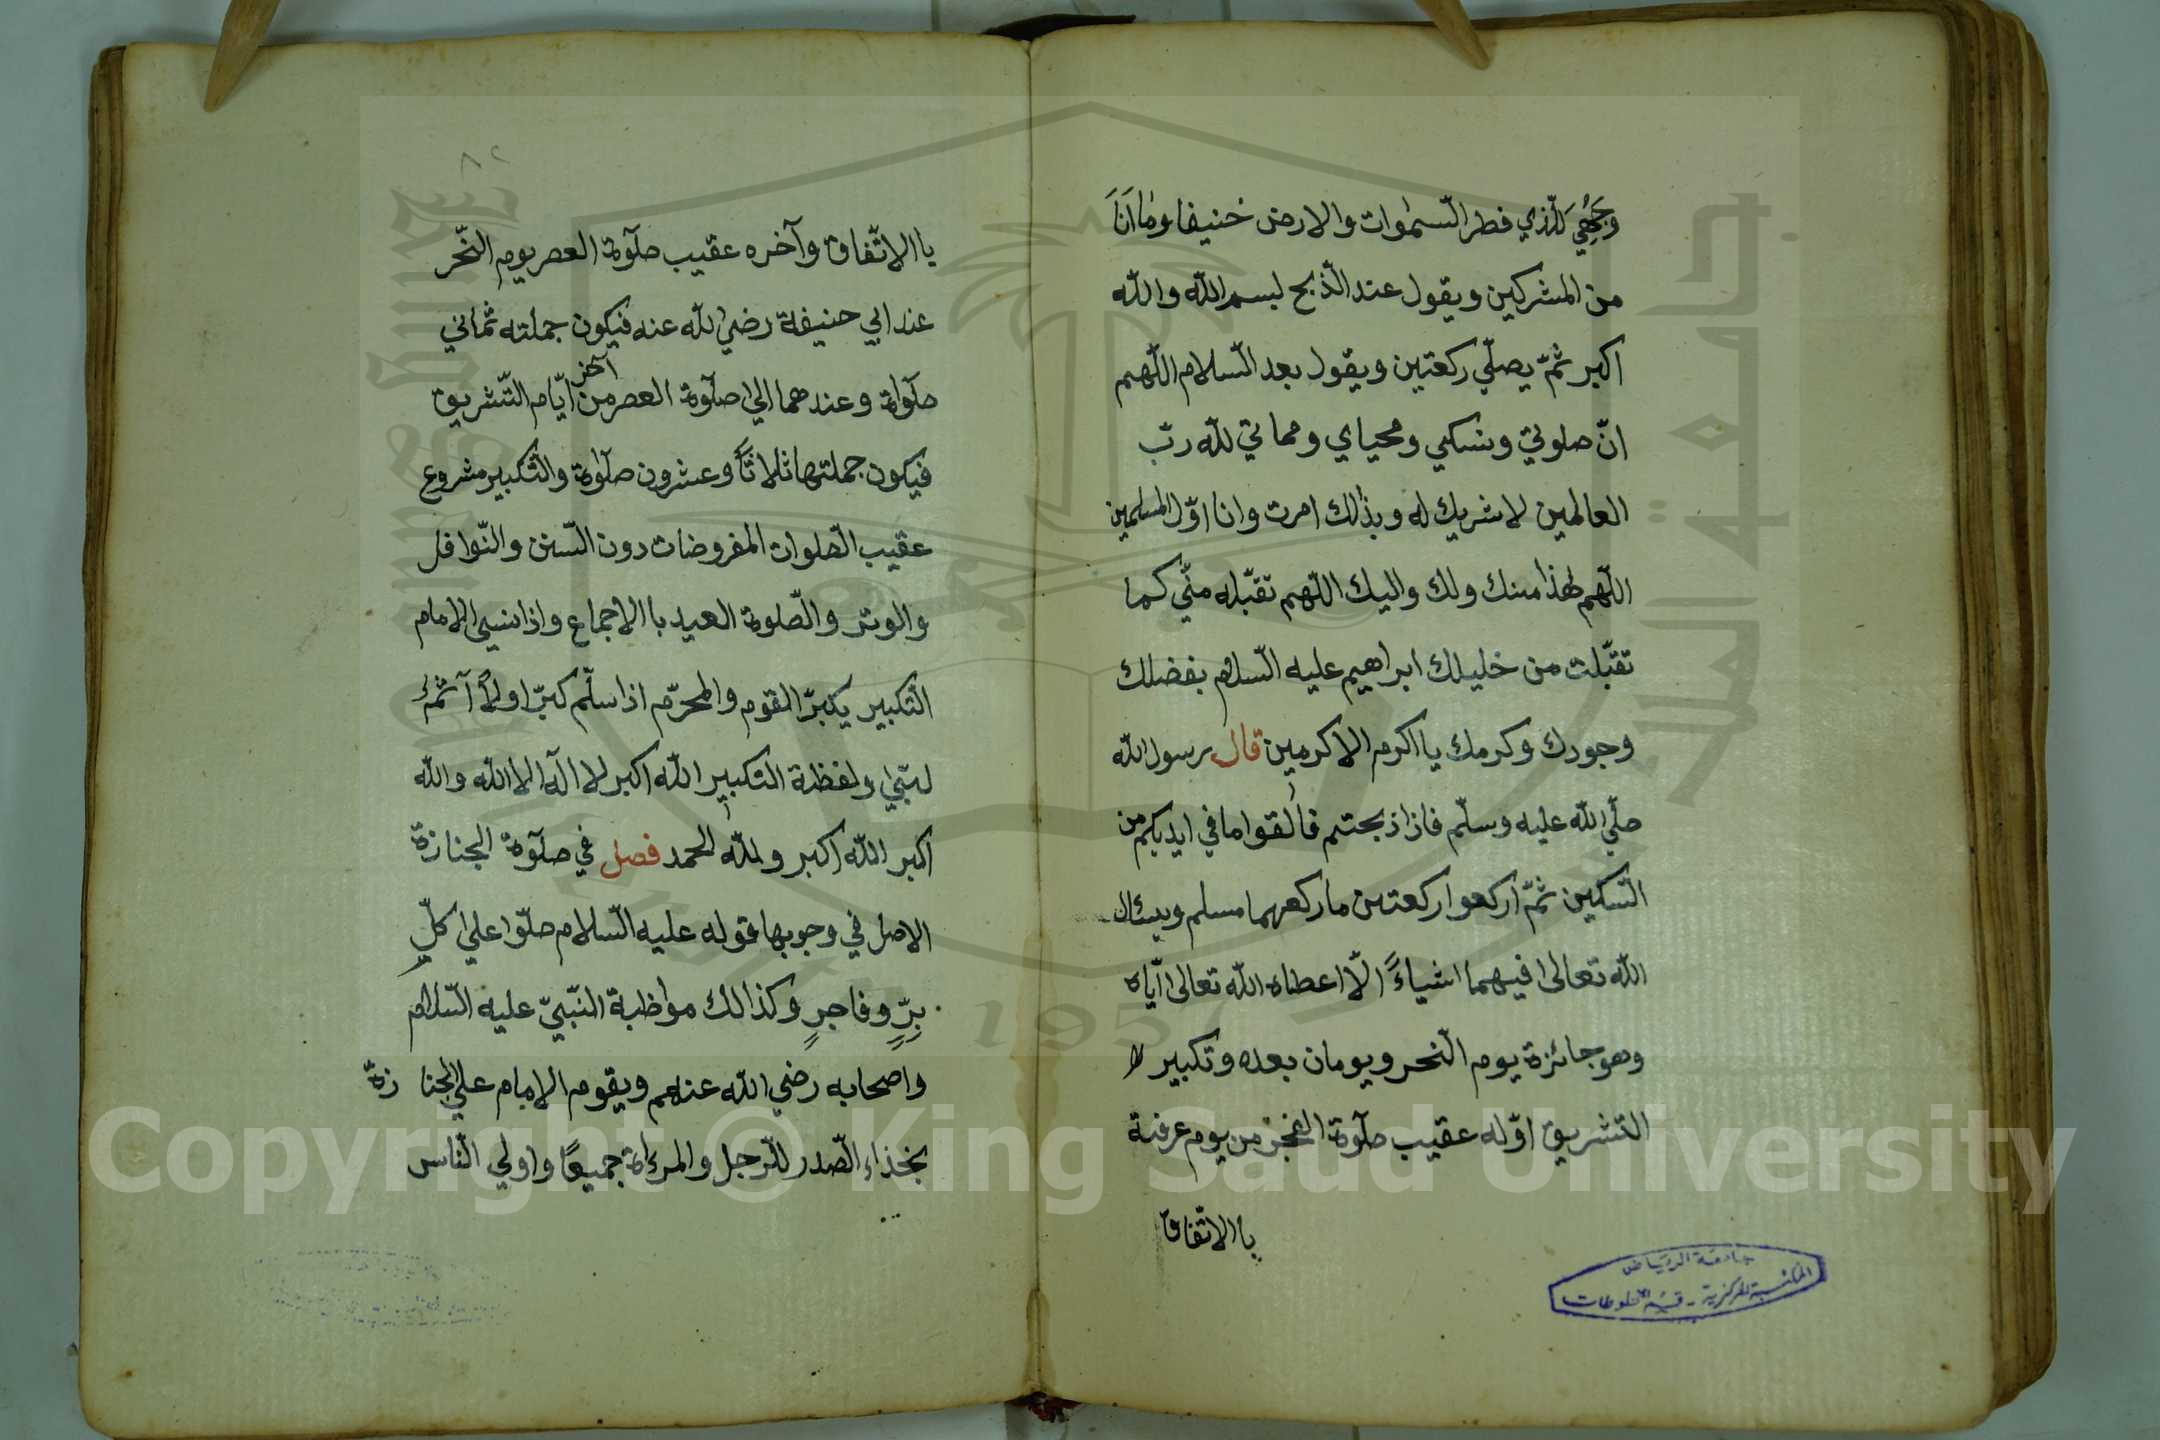 وَجْهِيَ لِلّذي فطر السّمٰوات والارض حنيفا وما اَنَا
من المشركين ويقول عند الذّبح بسم الله والله
اكبر ثمّ يصلّي ركعتين ويقول بعد السّلام اللّهم
انّ صلوتي ونسكي ومحياي ومماتي لله ربّ
العالمين لا شريك له وبذالك امرت وانا اوّل المسلمين
اللّهم هٰذا منك ولك واليك اللّهم تقبّله منّي كما
تقبّلت من خليلك ابراهيم عليه السّلام بفضلك
وجودك وكرمك يا اكرم الاكرمين قال رسول الله
صلّي الله عليه وسلّم فاذا ذبحتم فالقوا ما في ايديكم من
السّكين ثمّ اركعوا ركعتين ما ركعهما مسلم ويسئال
الله تعالى فيهما اشياءً الّا اعطاه الله تعالى ايّاه
وهو جائزة يوم النّحر ويومان بعده وتكبير لا
التّشريق اوّله عقيب صلٓوة الفجر من يوم عرفة
باالاتّفاق
جامعة الرياض
المكتبة المركزية - قسم المخطوطات
٨٢
باالاتّفاق وآخره عقيب صلٓوة العصر يوم النّحر
عند ابي حنيفة رضي الله عنه فيكون جملته ثماني
صلٓواة وعندهما الي صلٓوة العصر من آخر ايّام التّشريق
فيكون جملتها ثلاثاً وعشرون صلٓوة والتّكبير مشروع
عقيب الصّلوات المفروضات دون السّنن والنّوافل
والوتر والصّلوة العيد باالاجماع واذا نسي الامام
التّكبير يكبّر القوم والمحرّم اذا سلّم كبّر اولاً ثمّ
لبّي ولفظة التكبير الله اكبر لا اله الا الله والله
اكبر الله اكبر ولله الحمد فصل في صلٓوة الجنازة
الاصل في وجوبها قوله عليه السّلام صلّوا علي كلّ
برٍّ وفاجرٍ وكذالك مواظبة النّبيّ عليه السّلام
واصحابه رضي الله عنهم ويقوم الامام علي الجنازة
بخذاء الصّدر للرّجل والمرءاة جميعًا واولي النّاس
جامعة الملك سعود
King Saud University
1957
Copyright © King Saud University